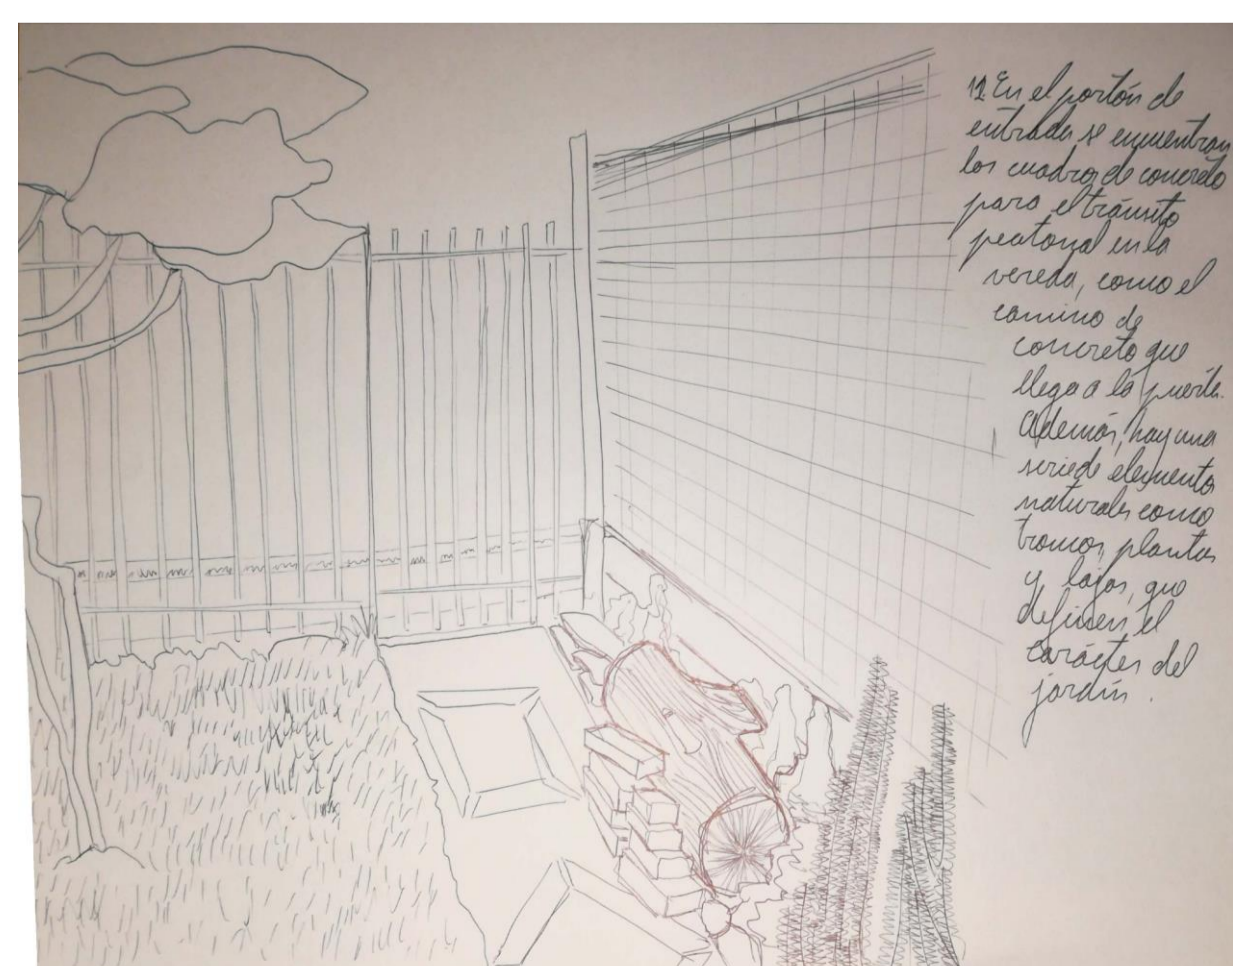 11. En el portón de
entrada se encuentran
los cuadros de concreto
para el tránsito
peatonal en la
vereda, como el
camino de
concreto que
llega a la puerta.
Además, hay una
serie de elementos
naturales como
troncos, plantas
y lajas, que
definen el
carácter del
jardín.